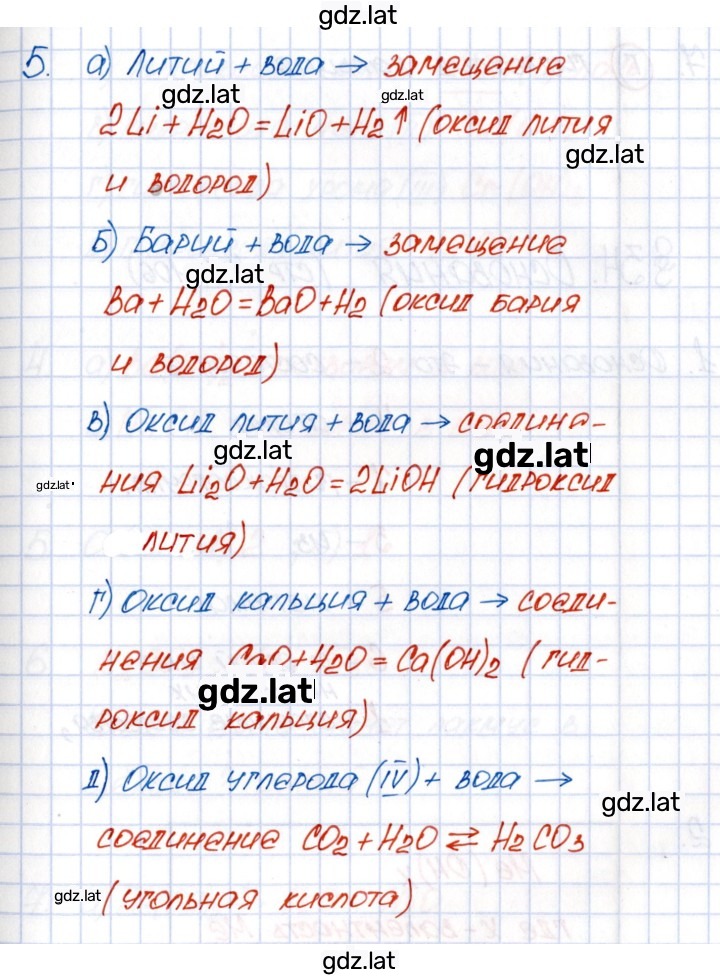 gdz.lat
5. а) Литий + вода → замещение
gdz.lat gdz.lat
2Li + H₂O = LiO + H₂↑ (оксид лития
gdz.lat
и водород)
Б) Барий + вода → замещение
gdz.lat
Ba + H₂O = BaO + H₂ (оксид бария
и водород)
в) Оксид лития + вода → соедине-
gdz.lat gdz.lat
gdz.lat
ния Li₂O + H₂O = 2LiOH (гидроксид
лития)
г) Оксид кальция + вода → соеди-
нения CaO + H₂O = Ca(OH)₂ (гид-
gdz.lat
роксид кальция)
д) Оксид углерода (IV) + вода →
gdz.lat
соединение CO₂ + H₂O ⇄ H₂CO₃
gdz.lat (угольная кислота)
gdz.lat